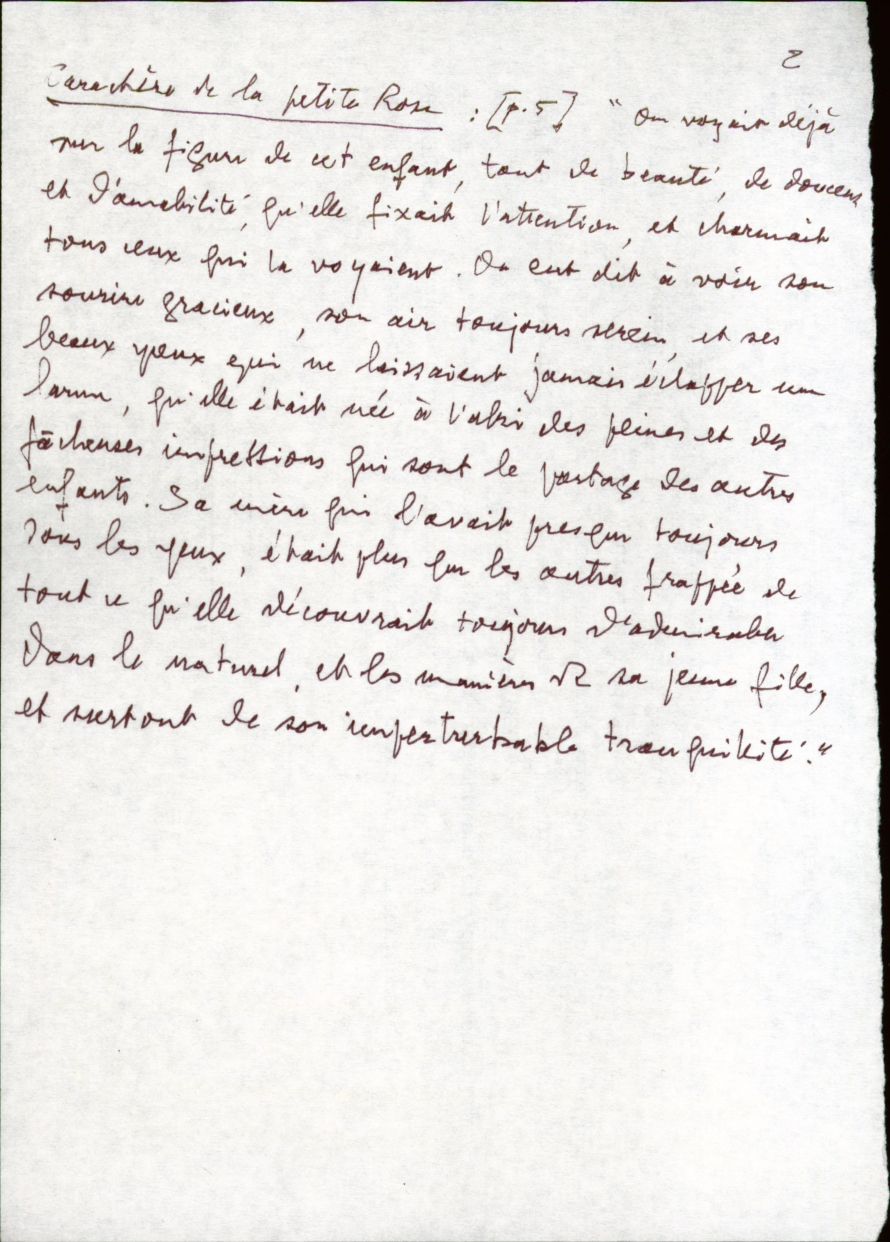 2
Caractère de la petite Rose : [p.5] " On voyait déjà
sur la figure de cet enfant, tant de beauté, de douceur
et d'amabilité, qu'elle fixait l'attention, et charmait
tous ceux qui la voyaient. On eut dit à voir son
sourire gracieux, son air toujours serein, et ses
beaux yeux qui ne laissaient jamais échapper une
larme, qu'elle était née à l'abri des peines et des
fâcheuses impressions qui sont le partage des autres
enfants. Sa mère qui l'avait presque toujours
sous les yeux, était plus que les autres frappée de
tout ce qu'elle découvrait toujours d'admirable
dans le naturel, et les manières de sa jeune fille,
et surtout de son imperturbable tranquilité."